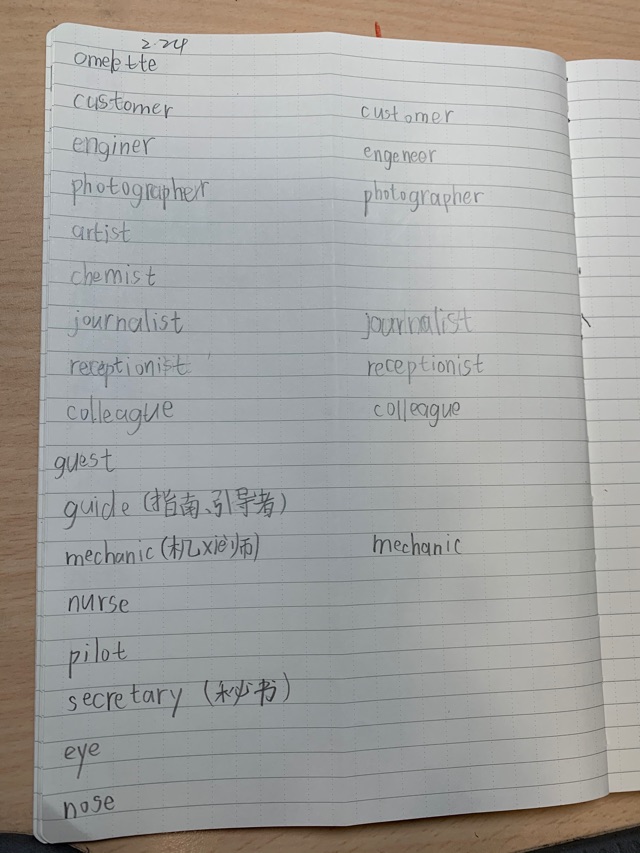 2.24
omelette
customer customer
enginer engeneer
photographer photographer
artist
chemist
journalist journalist
receptionist receptionist
colleague colleague
guest
guide (指南、引导者)
mechanic (机xiè师) mechanic
nurse
pilot
secretary (秘书)
eye
nose